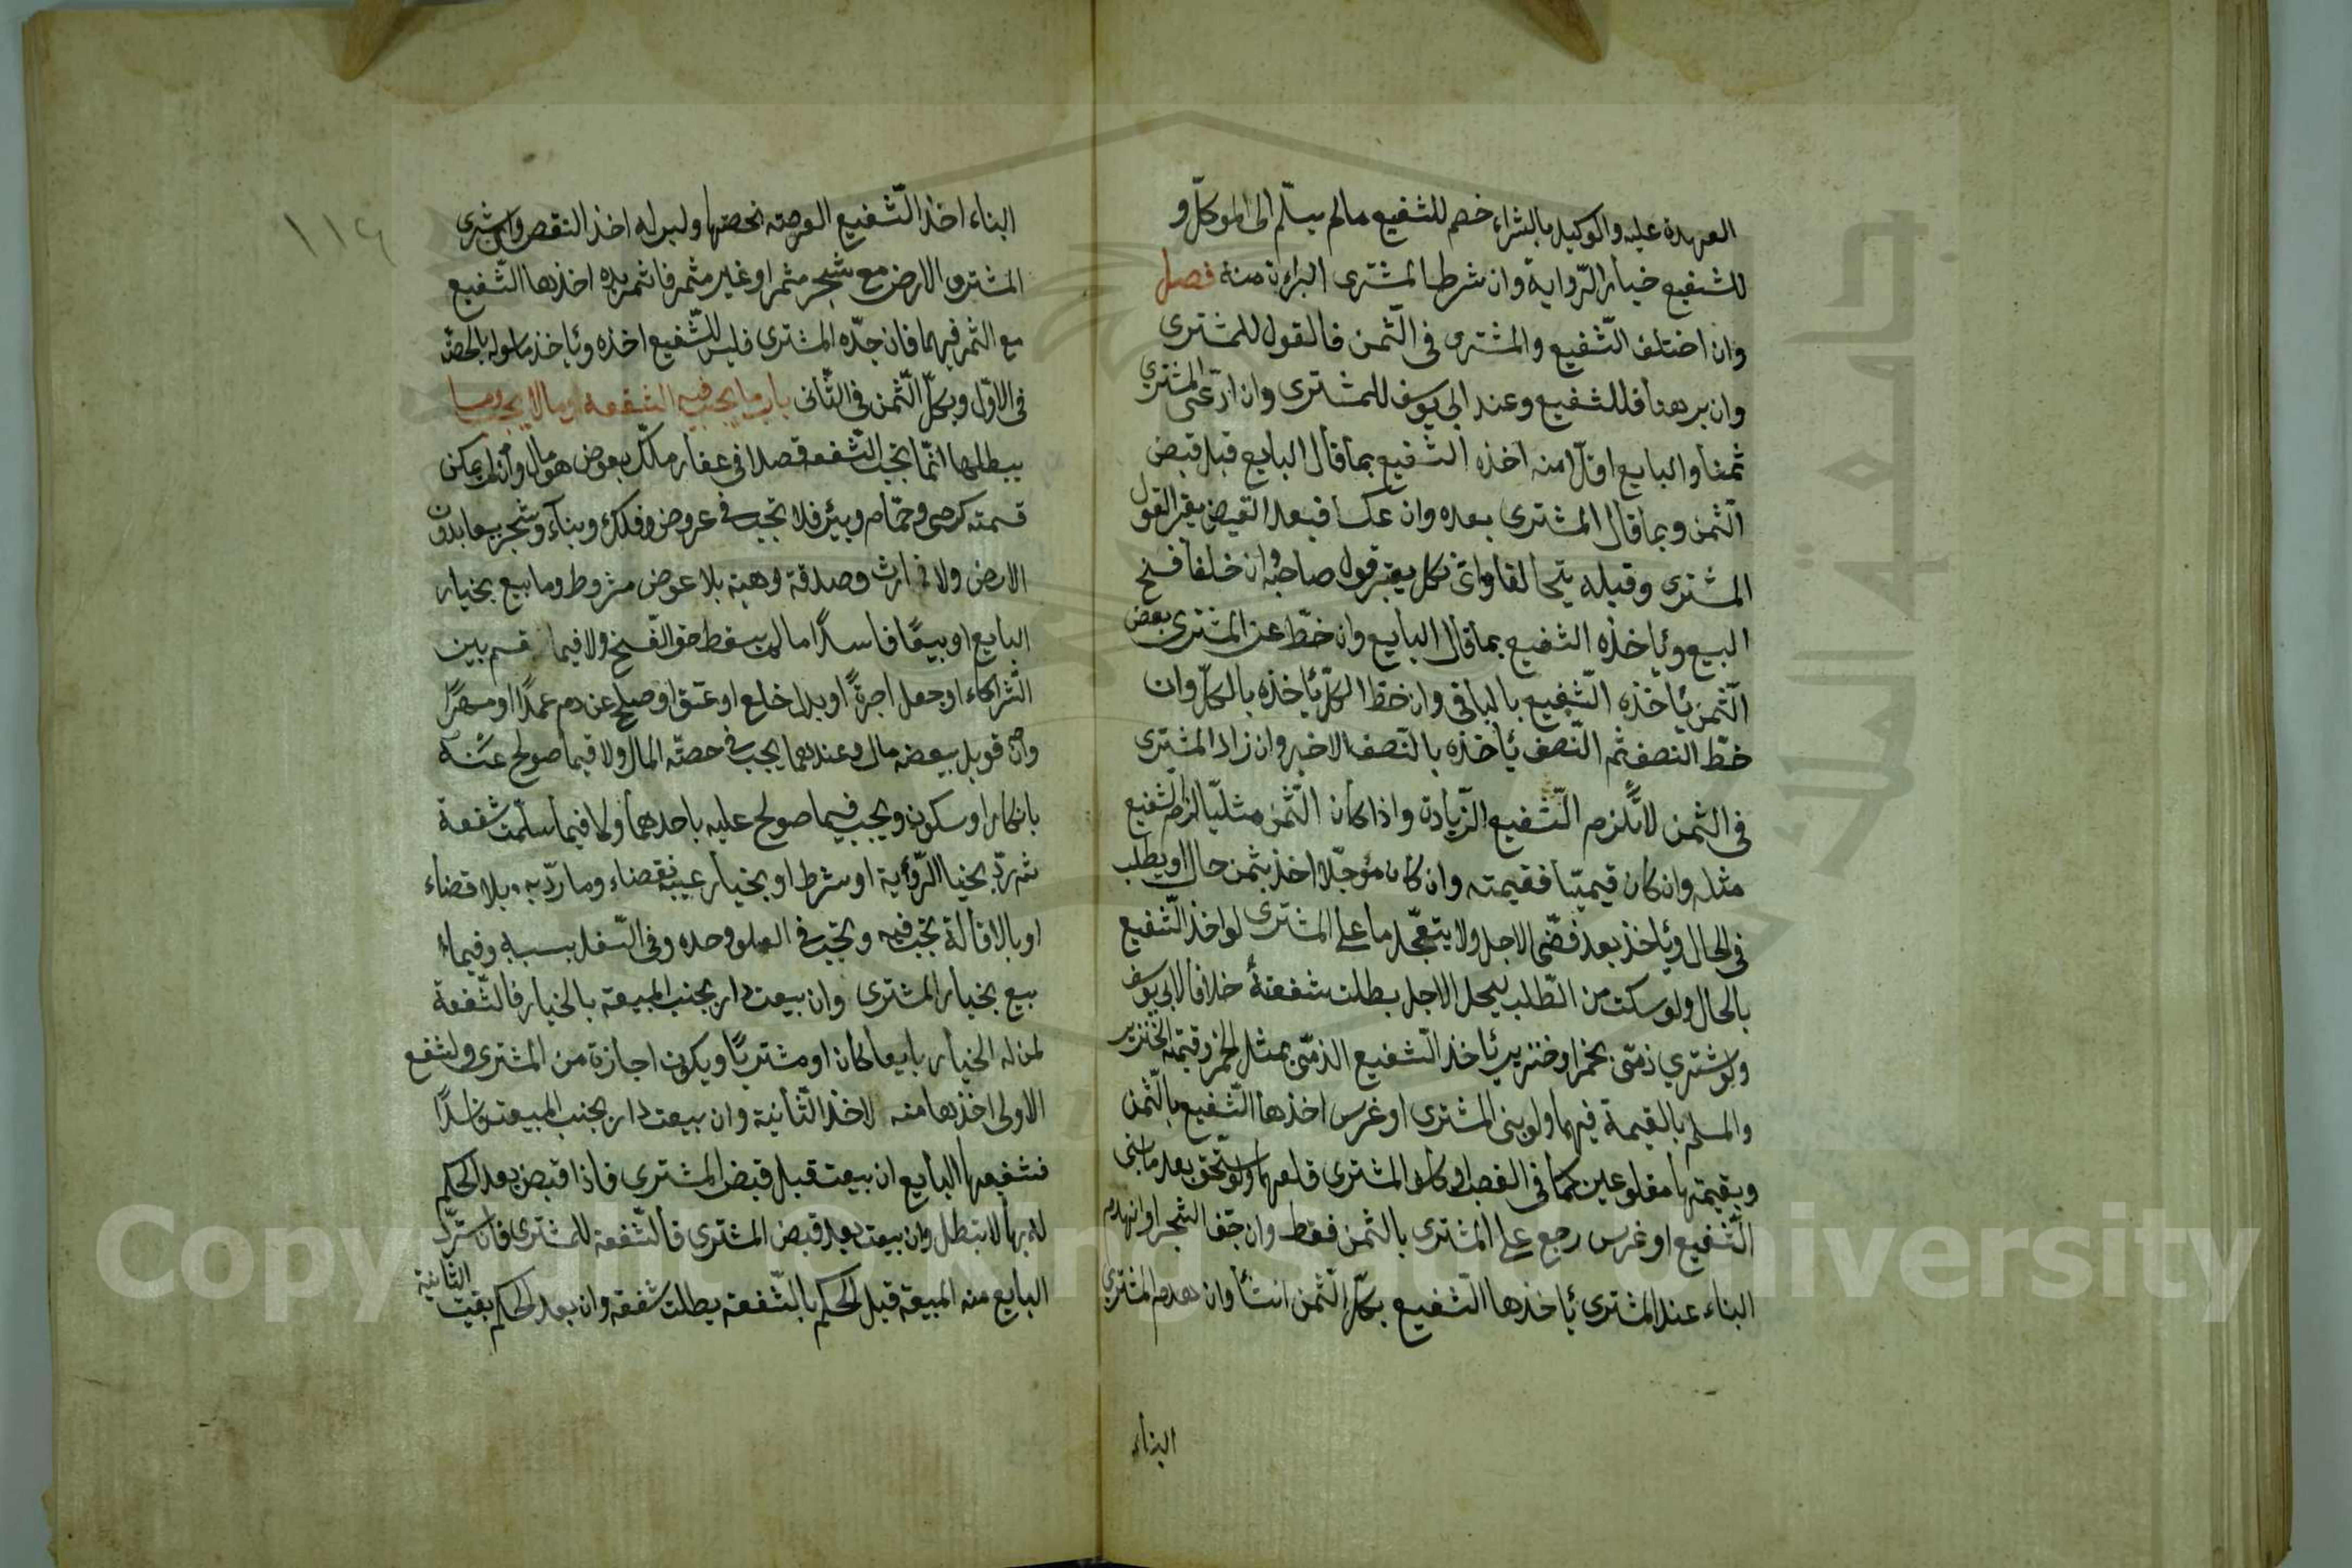 العهدة عليه والوكيل بالشراء خصم للشفيع مالم يسلّم الى الموكّل و
للشفيع خيار الرّواية وان شرط المشترى البراءة منه فصل
وان اختلف الشّفيع والمشترى فى الثّمن فالقول للمشترى
وان برهنا فللشفيع وعند ابى يوسف للمشترى وان ادّعى المشتري
ثمنا والبايع اقلّ منه اخذه الشّفيع بما قال البايع قبل قبض
الثّمن وبما قال المشترى بعده وان عكسا فبعد القبض يعتبر القول
المشترى وقبله يتحالفا واىّ نكل يعتبر قول صاحبه وان حلفا فسخ
البيع وياخذه الشفيع بما قال البايع وان حطّ عن المشترى بعض
الثّمن ياخذه الشّفيع بالباقى وان حطّ الكلّ ياخذه بالكلّ وان
حطّ النصف ثم النّصف ياخذه بالنّصف الاخير وان زاد المشترى
فى الثمن لا يلزم الشّفيع الزّيادة واذا كان الثّمن مثليّا لزم الشفيع
مثله وان كان قيميّا فقيمته وان كان مؤجّلا اخذ بثمن حال او يطلب
فى الحال وياخذ بعد مضّى الاجل ولا يتعجّل ما على المشترى لو اخذ الشّفيع
بالحال ولو سكت من الطّلب ليحل الاجل بطلت شفعته خلافا لابى يوسف
ولو اشتري ذمّى بخمر او خنزير ياخذ الشفيع الذمّى بمثل الخمر وقيمة الخنزير
والمسلم بالقيمة فيهما ولو بنى المشترى او غرس اخذها الشّفيع بالثّمن
وبقيمتهما مقلوعين كما فى الغصب او كلف المشترى قلعهما ولو استحق بعد ما بنى
الشّفيع او غرس رجع على المشترى بالثمن فقط وان جفّ الشجر او انهدم
البناء عند المشترى ياخذها الشّفيع بكلّ الثّمن ان شأ وان هدم المشترى
البناء
١١٤
البناء اخذ الشّفيع العرصة بحصتها وليس له اخذ النقض وان اشترى
المشترى الارض مع شجر مثمر او غير مثمر فاثمر بيده اخذها الشّفيع
مع الثمر فيهما فان جدّه المشترى فليس للشّفيع اخذه وياخذ ما سواه بالحصّة
فى الاوّل وبكلّ الثّمن فى الثّانى باب ما يجب فيه الشفعة وما لا يجب وما
يبطلها انمّا تجب الشّفعة قصدا فى عقار ملك بعوض هو مال وان لم يمكن
قسمته كرحى وحمّام وبئر فلا تجب فى عروض وفلك وبناء وشجر بيعا بدون
الارض ولا فى ارث وصدقة وهبة بلا عوض مشروط وما بيع بخيار
البايع او بيعًا فاسدًا ما لم يسقط حق الفسخ ولا فيما قسم بين
الشّركاء او جعل اجرةً او بدل خلع او عتق او صلح عن دم عمدًا او مهرًا
وان قوبل ببعضه مال وعندهما يجب فى حصّة المال ولا فيما صولح عنه
بانكار او سكوت ويجب فيما صولح عليه باحدهما ولا فيما سلّمت شفعة
ثم ردّ بخيار الرّؤية او شرط او بخيار عيب بقضاء وما ردّ به بلا قضاء
او بالاقالة تجب فيه وتجب فى العلو وحده وفى السّفل بسببه وفيما
بيع بخيار المشترى وان بيعت دار بجنب المبيعة بالخيار فالشّفعة
لمن له الخيار بايعا كان او مشتريًا ويكون اجازة من المشترى ولشفيع
الاولى اخذها منه لا اخذ الثّانية وان بيعت دار بجنب المبيعة فاسدًا
فشفيعها البايع ان بيعت قبل قبض المشترى فاذا قبض بعد الحكم
له بها لا تبطل وان بيعت بعد قبض المشترى فالشّفعة للمشترى فان استردّ
البايع منه المبيعة قبل الحكم بالشّفعة بطلت شفعته وان بعد الحكم بقيت الثانية
Copyright © King Saud University
جامعة الملك سعود